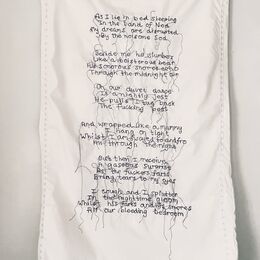 As I lie in bed sleeping
In the Land of Nod
My dreams are disrupted
By the noisome Sod

Beside me he slumbers
Like a boisterous bear
His sonorous snores echo
Through the midnight air

On our duvet
A nightly joust
He pulls I tug back
The fucking

And wrapped like a mummy
I hang on tight
Whilst I am to and fro
through the night

But then I receive
A gaseous surprise
As the fuckers farts
Bring tears to my eyes

I cough and I splutter
In the nighttime gloom
Whilst his farts and snores
Fill our bleeding bedroom